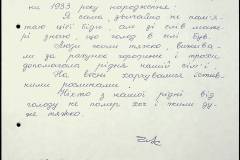 ки 1933 року народження:
Я сама, звичайно не пам'я-
таю цієї біди, але зі слів може
знаю, що голод в селі був.
Люди жили тяжко, вижива-
ли за рахунок городини і трохи
допомагала рідня нашій сім'ї.
На весні харчувалися їстів-
ними рослинами.
Ніхто з нашої рідні від
голоду не помер хоч і жили ду-
же тяжко.